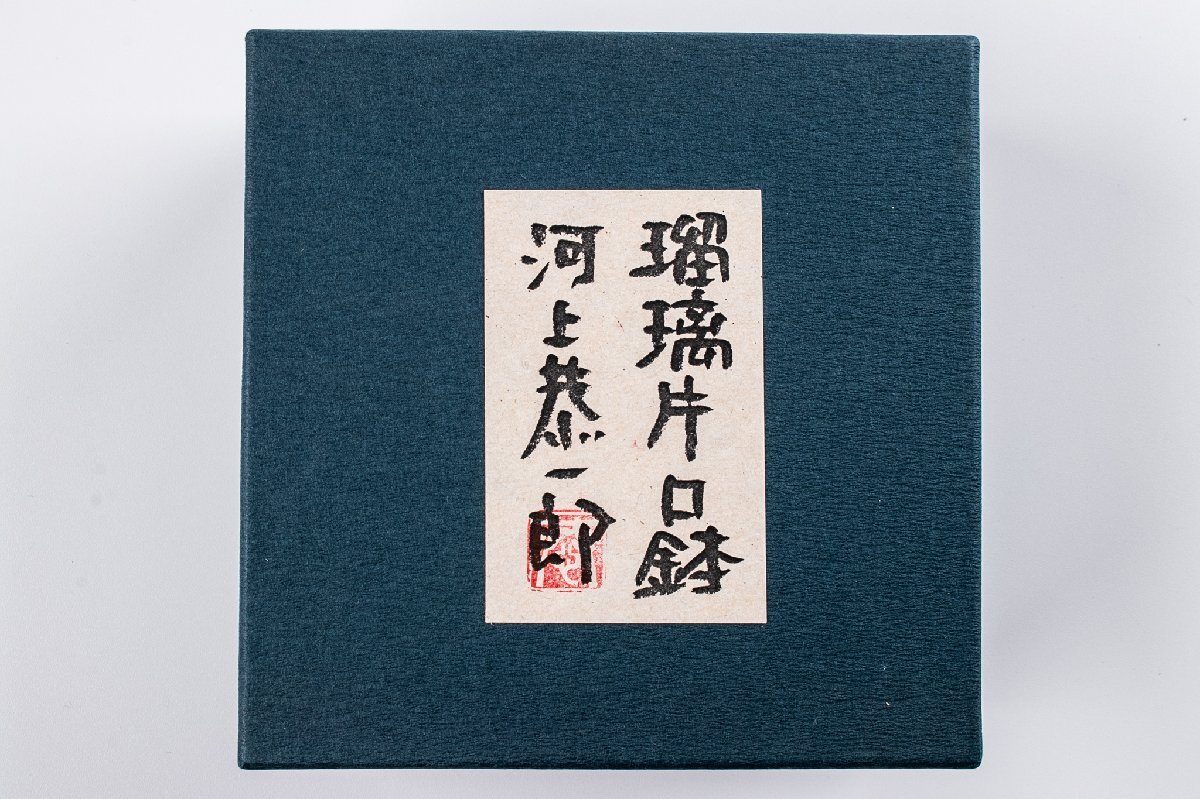 瑠璃片口鉢
河上恭一郎